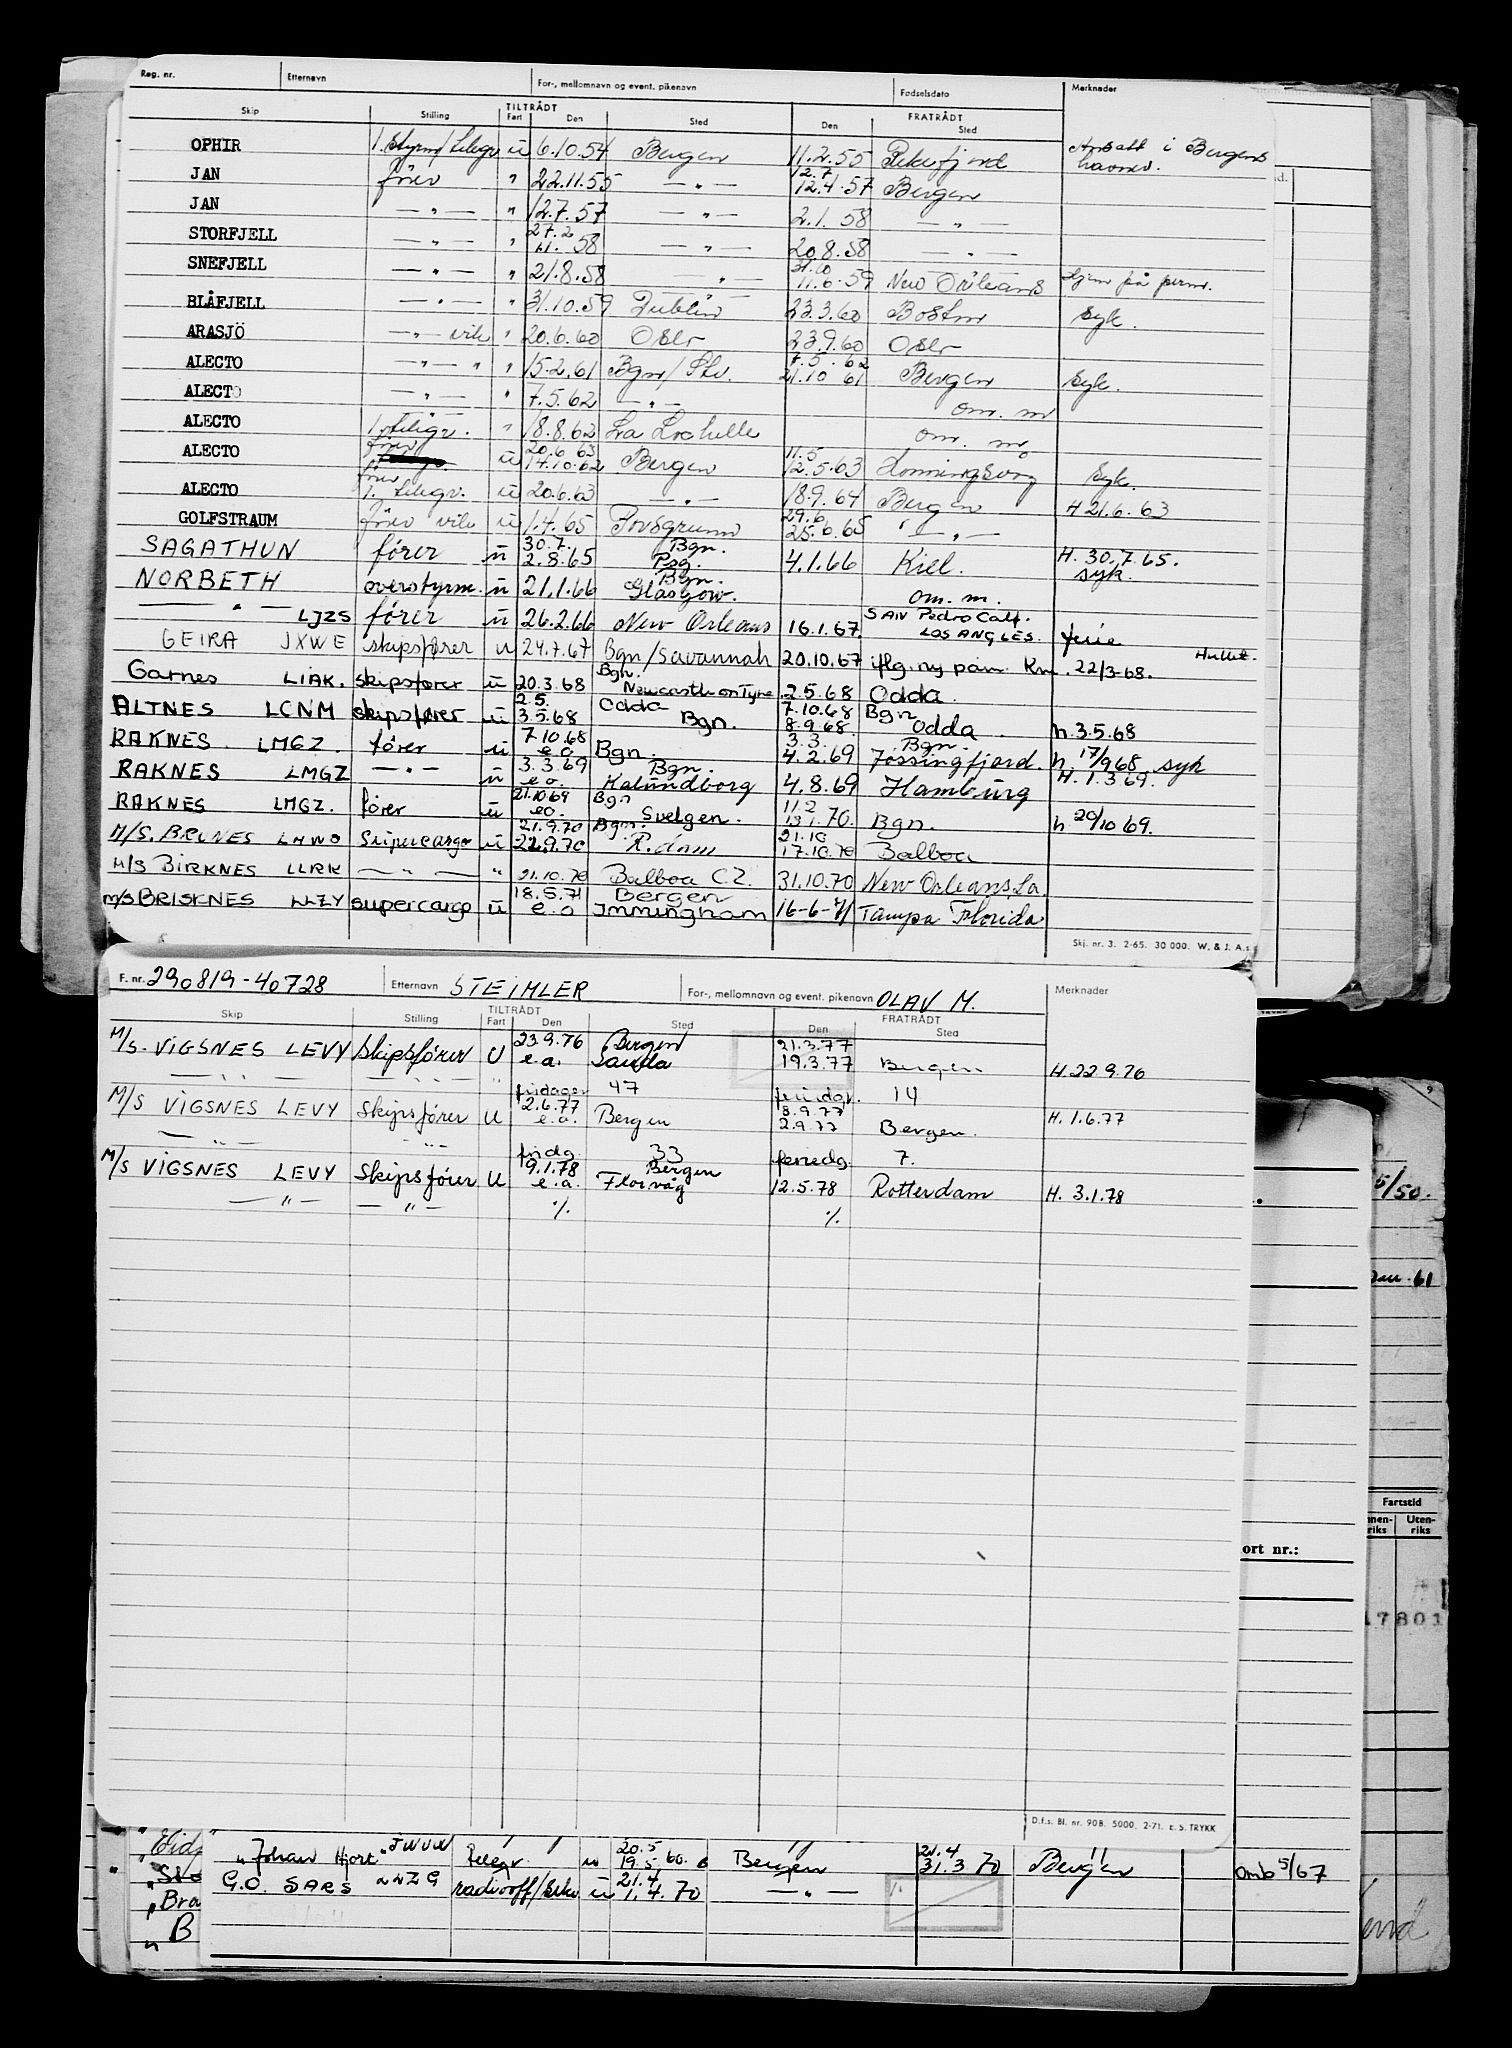 Reg. nr. Etternavn For-, mellomnavn og event. pikenavn Fødselsdato Merknader
Skip Stilling TILTRÅDT Fart Den Sted Den FRATRÅDT Sted
OPHIR 1. styrm/telegr u 6.10.54 Bergen 11.2.55 Rekefjord Ansatt i Bergens havnev.
JAN fører " 22.11.55 — " — 12.7 12.4.57 Bergen
JAN — " — " 12.7.57 — " — 2.1.58 — " —
STORFJELL — " — " 27.2 11. 58 — " — 20.8.58 — " —
SNEFJELL — " — " 21.8.58 — " — 31.10 11.6.59 New Orleans Hjem på perm.
BLÅFJELL — " — " 31.10.59 Dublin 23.3.60 Boston Syk.
ARASJÖ — " — vik " 20.6.60 Oslo 23.9.60 Oslo
ALECTO — " — " " 15.2.61 Bgn/Stv. 7.5.62 21.10 61 Bergen Syk.
ALECTO — " — " 7.5.62 — " — om. m
ALECTO 1. telegr. " 18.8.62 La Rochelle om. m
ALECTO fører u 20.6 63 14.10.62 Bergen 11.5 12.5.63 Honningsvåg Syk.
ALECTO fører 1. telegr. u 20.6.63 — " — 18.9.64 Bergen H 21.6.63
GOLFSTRAUM fører vik u 1.4.65 Porsgrunn 29.6 25.6.65 " — " —
SAGATHUN fører u 30.7. 2.8.65 Bgn. Psg. 4.1.66 Kiel. H. 30.7.65. syk.
NORBETH overstyrm. u 21.1.66 Bgn. Glasgow. om. m.
— " — LJZS fører u 26.2.66 New Orleans 16.1.67. SAN Pedro Calf. LOS ANGLES. ferie
GEIRA JXWE skipsfører u 24.7.67 Bgn/Savannah 20.10.67 iflg. ny påm. Kn. 22/3-68. Hullet.
Garnes LIAK. skipsfører u 20.3.68 Bgn. Newcastle on Tyne 2.5.68 Odda
ALTNES LCNM skipsfører u 2.5. 3.5.68 Odda Bgn. 7.10.68 8.9.68. Bgn Odda. h. 3.5.68
RAKNES. LMGZ. fører u 7.10.68 e.o. Bgn. 3.3. 4.2.69 Bgn. Jøssingfjord. h. 17/9 68 syk
RAKNES LMGZ — " — u 3.3.69 e.o. Bgn. Kalundborg 4.8.69 Hamburg H. 1.3 69.
RAKNES LMGZ. fører u 21.10 69 eo. Bgn Svelgen. 11.2 13.1.70. Bgn. h 20/10 69.
M/S. BRUNES LHWO Supercargo u 21.9.70 22.9.70 Bgn. R.dam 21.10 17.10.70 Balboa
M/S BIRKNES LLRK — " — " 21.10.70 Balboa CZ. 31.10.70 New Orleans, La.
m/s BRISKNES LLZY supercargo u 18.5.71 e.o Bergen Immingham 16-6-71 Tampa Florida
Skj. nr. 3. 2-65. 30 000. W. & J. A.s
F. nr. 290819-40728 Etternavn STEIMLER For-, mellomnavn og event. pikenavn OLAV M. Merknader
Skip Stilling TILTRÅDT Fart Den Sted Den FRATRÅDT Sted
M/S. VIGSNES LEVY Skipsfører U 23.9.76 e.a. Bergen Sauda 21.3.77 19.3.77 Bergen H. 22.9.76
— " — — " — " fridager 47 feriedgr. 14
M/S VIGSNES LEVY Skipsfører U 2.6.77 e.a. Bergen 3.9.77 2.9.77 Bergen. H. 1.6.77
— " — " — fridg. 33 feriedg. 7.
M/S VIGSNES LEVY Skipsfører U 9.1.78 e.a. Bergen Florvåg 12.5.78 Rotterdam H. 3.1.78
— " — — " — %. %.
D.f.s. Bl. nr. 908. 5000. 2-71. E. S. TRYKK
5/50.
61
Fartstid
Uten-riks
ort nr.:
17801
"Johan Hjort" Telegr. u 20.5 19.5.60. Bergen 21.4 31.3 70 Bergen omb 5/67
G.O. SARS LLZG radiooff/Elkv u 21.4 1.4.70 — " —
"Bra
B